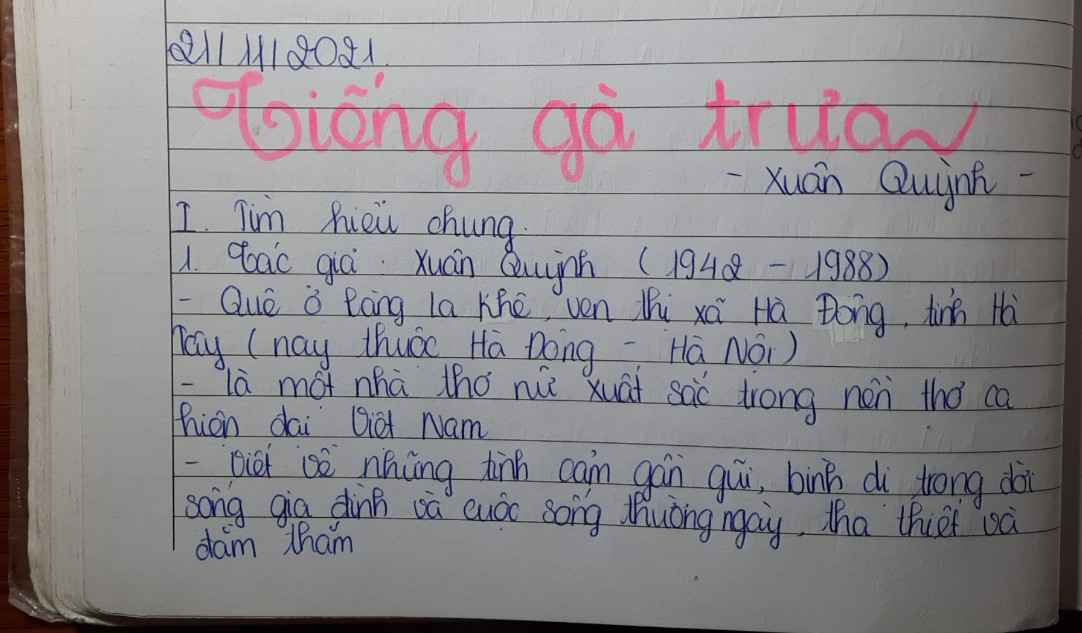 21/11/2021.
Tiếng gà trưa
- Xuân Quỳnh -
I. Tìm hiểu chung.
1. Tác giả. Xuân Quỳnh (1942 - 1988)
- Quê ở làng La Khê, ven thị xã Hà Đông, tỉnh Hà
Tây (nay thuộc Hà Đông - Hà Nội)
- là một nhà thơ nữ xuất sắc trong nền thơ ca
hiện đại Việt Nam
- Viết về những tình cảm gần gũi, bình dị trong đời
sống gia đình và cuộc sống thường ngày, tha thiết và
đằm thắm